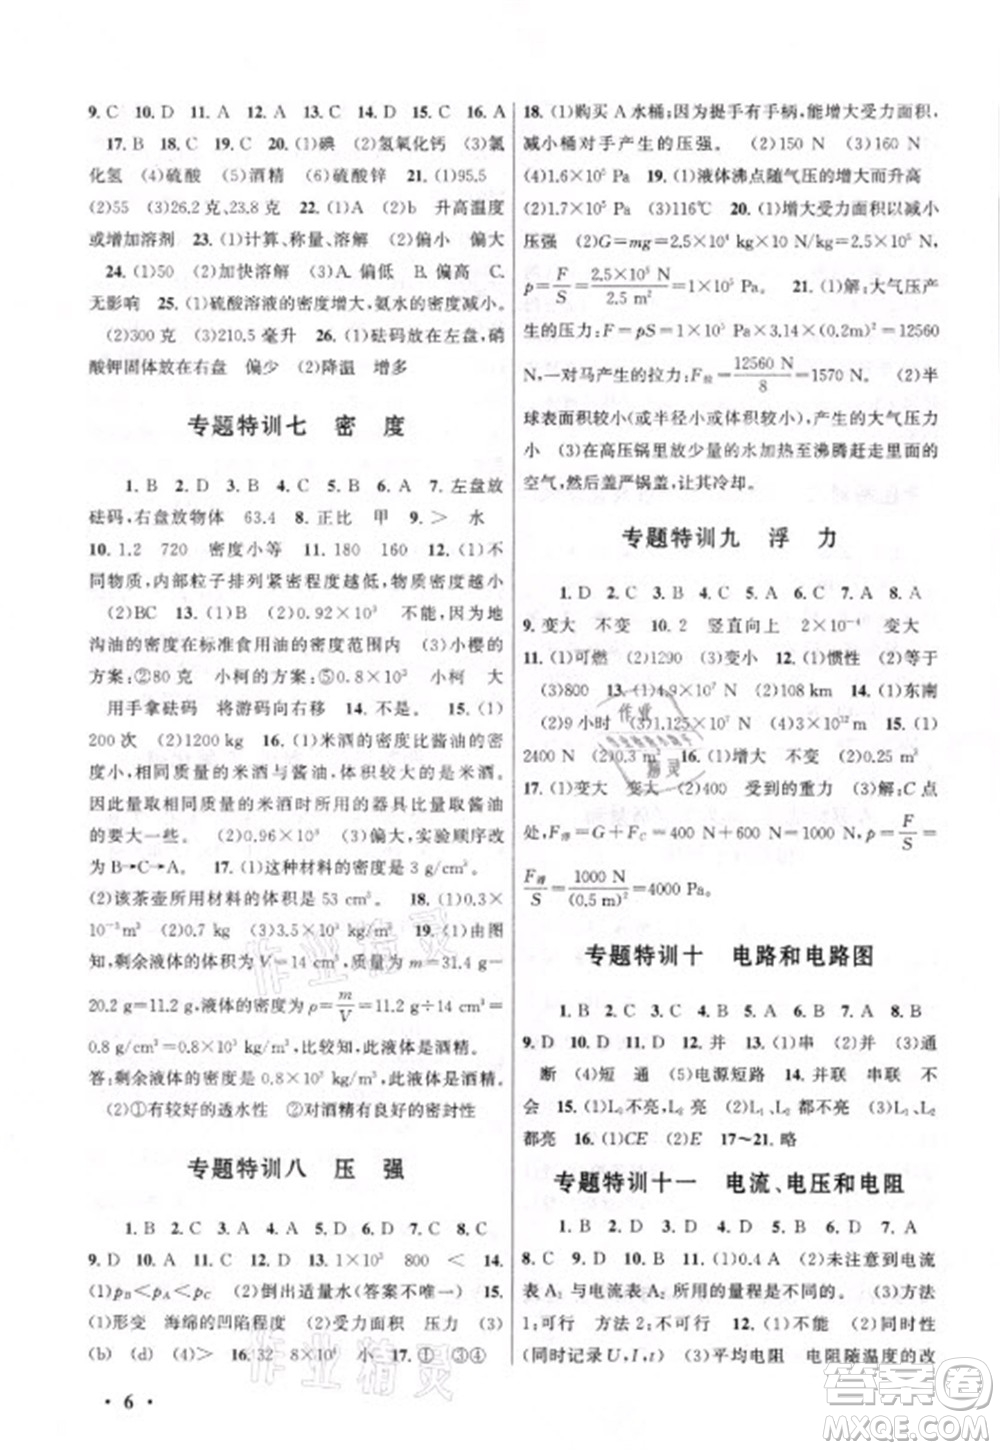 9. C 10. D 11. A 12. A 13. C 14. D 15. C 16. A
17. B 18. C 19. C 20. (1)碘 (2)氢氧化钙 (3)氯
化氢 (4)硫酸 (5)酒精 (6)硫酸锌 21. (1)95.5
(2)55 (3)26.2 克、23.8 克 22. (1)A (2)b 升高温度
或增加溶剂 23. (1)计算、称量、溶解 (2)偏小 偏大
24. (1)50 (2)加快溶解 (3)A. 偏低 B. 偏高 C.
无影响 25. (1)硫酸溶液的密度增大、氨水的密度减小。
(2)300 克 (3)210.5 毫升 26. (1)砝码放在左盘,硝
酸钾固体放在右盘 偏少 (2)降温 增多
专题特训七 密 度
1. B 2. D 3. B 4. C 5. B 6. A 7. 左盘放
砝码,右盘放物体 63.4 8. 正比 甲 9. > 水
10. 1.2 720 密度小等 11. 180 160 12. (1)不
同物质,内部粒子排列紧密程度可能相同,也可能不同
(2)BC 13. (1)B (2)0.92×10³ 不能,因为地
沟油的密度在标准食用油的密度范围内 (3)小樱的
方案:②80 克 小柯的方案:⑤0.5 克 (4)小柯 大
用手拿砝码 将游码向右移 14. 不是。 15. (1)
200 次 (2)1200 kg 16. (1)米酒的密度比酱油的密
度小,相同质量的米酒与酱油,体积较大的是米酒。
所以相同质量的米酒打米酒时所用的器具比打酱油
的要大一些。 (2)0.96×10³ (3)偏大,实验顺序改
为 B→C→A。 17. (1)这种材料的密度是 3 g/cm³
(2)该茶壶所用材料的体积是 53 cm³ 18. (1)0.3×
10⁻³m³ (2)0.7 kg (3)3.5 kg 19. (1)由图
知,剩余液体的体积为 V=14 cm³,质量为 m=31.4 g-
20.2 g=11.2 g,液体的密度为 ρ=m/V=11.2 g÷14 cm³=
0.8 g/cm³=0.8×10³ kg/m³,比较知,此液体是酒精。
答:剩余液体的密度是 0.8×10³ kg/m³,此液体是酒精。
(2)①有较好的透水性 ②对酒精有良好的密封性
专题特训八 压 强
1. B 2. C 3. B 4. D 5. D 6. D 7. D 8. C
9. D 10. A 11. C 12. D 13. 1×10³ 800 < 14.
(1)pB<pA<pC (2)倒出适量水(答案不唯一) 15.
(1)形变 海绵的凹陷程度 (2)受力面积 压力 (3)
(b) (d) (a) 16. 32 8×10³ 小 17. ① ③④
18. (1)购买 A 水桶;因为提手有手柄,能增大受力面积,
减小桶对手产生的压强。 (2)120 N (3)160 N
(4)1.6×10⁵ Pa 19. (1)液体沸点随气压的增大而升高
(2)1.7×10⁵ Pa (3)116℃ 20. (1)增大受力面积以减小
压强 (2)G=mg=2.5×10⁴ kg×10 N/kg=2.5×10⁵ N
p=F/S=2.5×10⁵ N/2.5 m²=1×10⁵ Pa 21. (1)解:大气压产
生的压力:F=pS=1×10⁵ Pa×3.14×(0.2m)²=12560
N,一对马产生的拉力:F拉=12560 N/8=1570 N。 (2)半
球表面积较小(或半径小或体积较小),产生的大气压力
小 (3)在高压锅里放少量的水加热至沸腾赶走里面的
空气,然后盖严锅盖,让其冷却。
专题特训九 浮 力
1. D 2. B 3. B 4. C 5. A 6. C 7. A 8. A
9. 变大 不变 10. 2 竖直向上 2×10⁻⁴ 变大
11. (1)可燃 (2)1290 (3)变小 12. (1)惯性 (2)等于
(3)800 13. (1)4.9×10⁷ N (2)108 km 14. (1)东南
(2)9 小时 (3)1.125×10⁷ N (4)3×10¹² m 15. (1)
2400 N (2)0.3 m³ 16. (1)增大 不变 (2)
17. (1)变大 变大 (2)受到的重力 (3)解:C 点
处,F浮=G+FC=400 N+600 N=1000 N,p=F/S=
F浮/S=1000 N/(0.5 m)²=4000 Pa。
专题特训十 电路和电路图
1. C 2. D 3. C 4. B 5. A 6. D 7. A 8. B
9. D 10. D 11. D 12. 并 13. (1)串 (2)并 (3)通
断 (4)短 通 (5)电源短路 14. 并联 串联 不
会 15. (1)L₁不亮,L₂亮 (2)L₁、L₂都不亮 (3)L₁、L₂
都亮 16. (1)CE (2)B 17~21. 略
专题特训十一 电流、电压和电阻
1. B 2. B 3. D 4. D 5. D 6. B 7. A
8. C 9. D 10. A 11. (1)0.4 A (2)未注意到电流
表 A₁ 与电流表 A₂ 所使用的量程是不同的。 (3)方法
1:可行 方法 2:不可行 12. (1)不能 (2)滑动变阻器
(同时记录 U,I,t) (3)平均电阻 电阻随温度的改
· 6 ·
作业精灵
作业精灵
作业精灵
答案圈
MXQE.COM